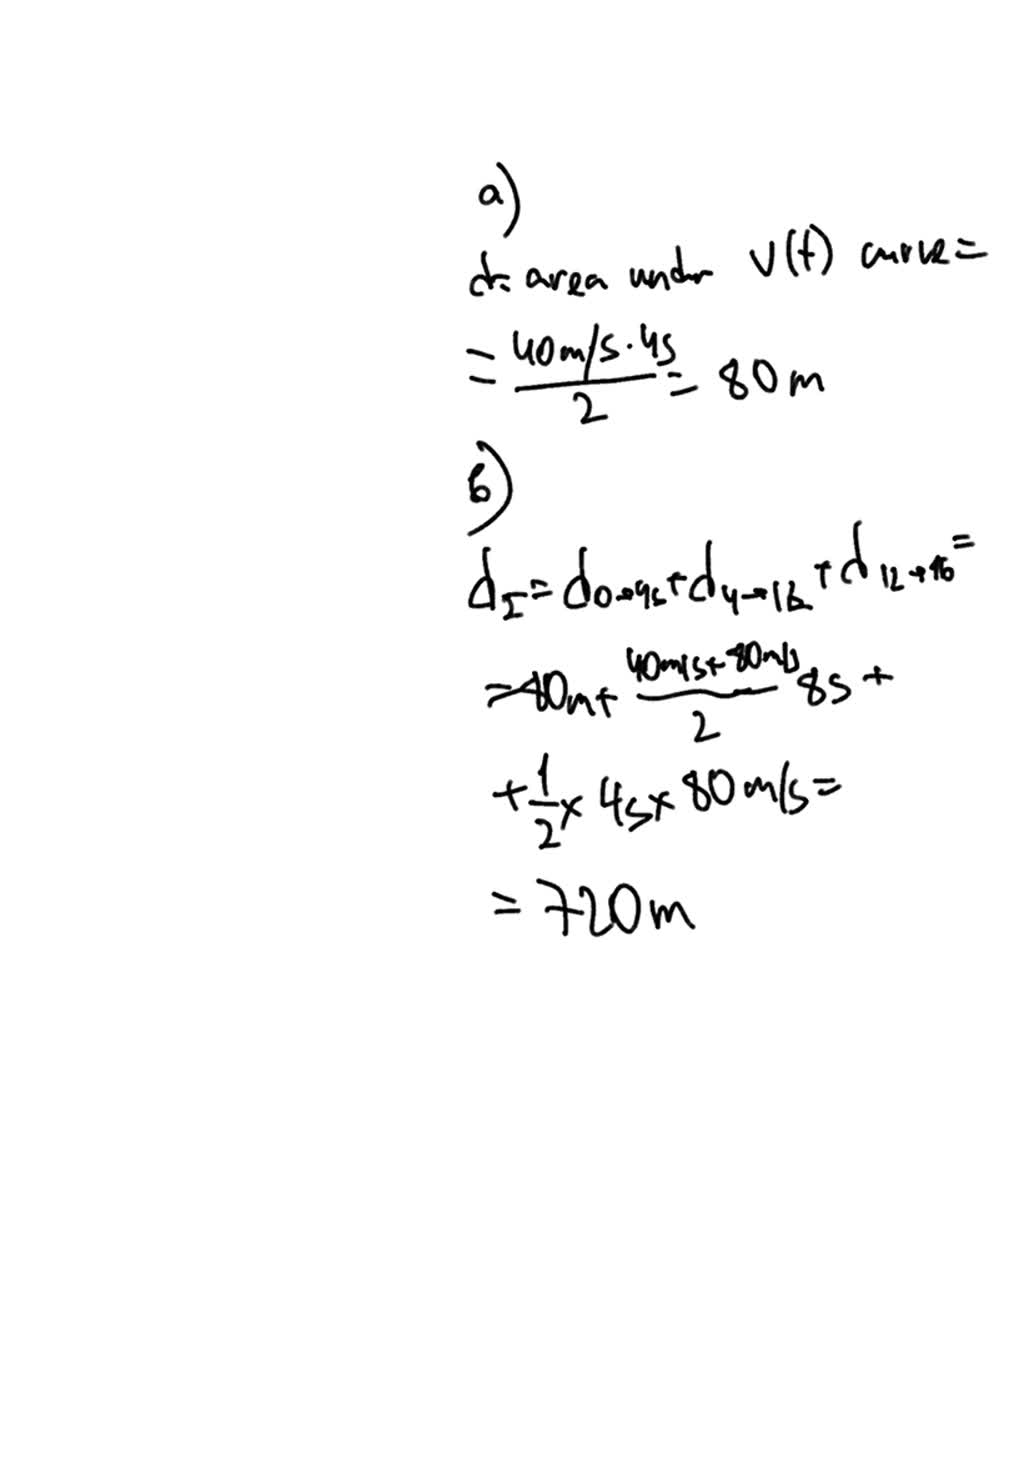 a)
d= area under v(t) curve=
= 40m/s·4s/2 = 80m
b)
dΣ= d0→4s+d4→12+d12→16=
=80m+ 40m/s+80m/s/2 8s +
+1/2 x 4s x 80m/s=
= 720m